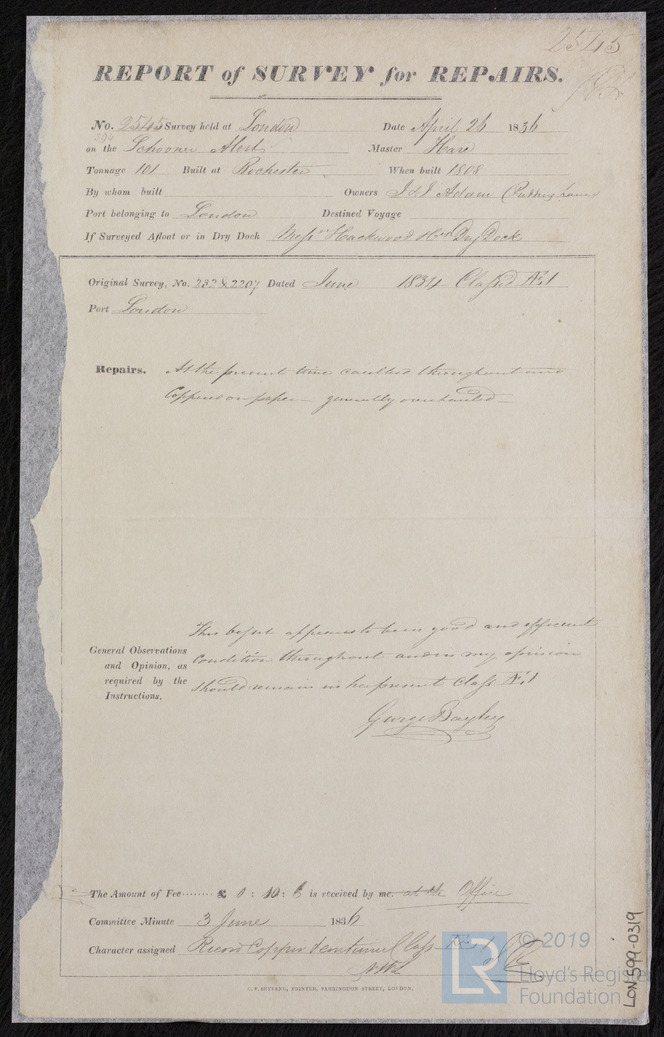 2545
REPORT of SURVEY for REPAIRS.
No. 2545 Survey held at London Date April 26 1836
on the Schooner Alert Master Hare
Tonnage 101 Built at Rochester When built 1808
By whom built Owners J & J Adam
Port belonging to London Destined Voyage
If Surveyed Afloat or in Dry Dock Messrs Hackwood & Co Dry Dock
Original Survey, No. 282 & 2207 Dated June 1834 Classed Æ 1
Port London
Repairs. At the present time caulked throughout and
Coppered on paper — generally overhauled —
This vessel appears to be in good and efficient
General Observations and Opinion, as required by the Instructions.
condition throughout and in my opinion
should remain in her present Class Æ 1
George Bayley
The Amount of Fee ........ £ 0 : 10 : 6 is received by me. at the Office
Committee Minute 3 June 1836
Character assigned Record Copper & continued Class Æ 1
C. F. SEYFANG, PRINTER, FARRINGDON STREET, LONDON.
LR
© 2019
Lloyd's Register
Foundation
LON 599-0319